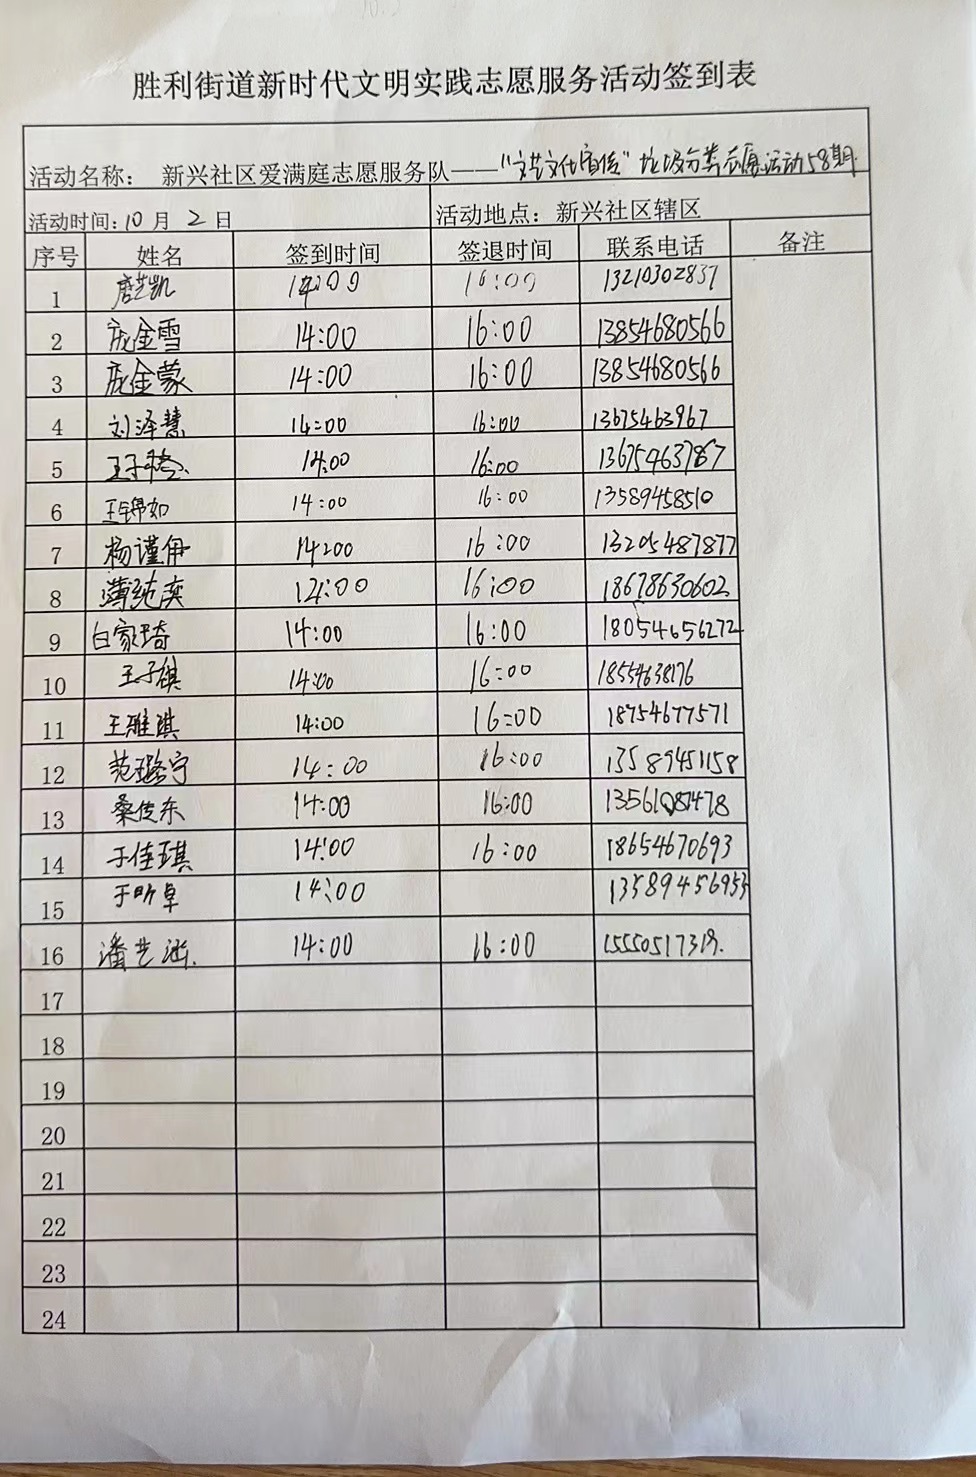 胜利街道新时代文明实践志愿服务活动签到表
活动名称： 新兴社区爱满庭志愿服务队——"文艺文化宣传"垃圾分类志愿活动58期.
活动时间:10月 2 日 活动地点：新兴社区辖区
序号 姓名 签到时间 签退时间 联系电话 备注
1 唐艺凯 14:00 16:00 13210302837
2 庞金雪 14:00 16:00 13854680566
3 庞金蒙 14:00 16:00 13854680566
4 刘泽慧 14:00 16:00 13675463967
5 14:00 16:00 13675463787
6 王锦如 14:00 16:00 13589458510
7 杨谨伊 14:00 16:00 13205487877
8 薄纯奕 14:00 16:00 18678630602
9 白家琦 14:00 16:00 18054656272
10 王子祺 14:00 16:00 18554638176
11 王雅淇 14:00 16:00 18754677571
12 范璐宁 14:00 16:00 13589451158
13 桑传东 14:00 16:00 13561087478
14 于佳琪 14:00 16:00 18654670693
15 于昕卓 14:00 13589456953
16 潘艺涵. 14:00 16:00
17
18
19
20
21
22
23
24